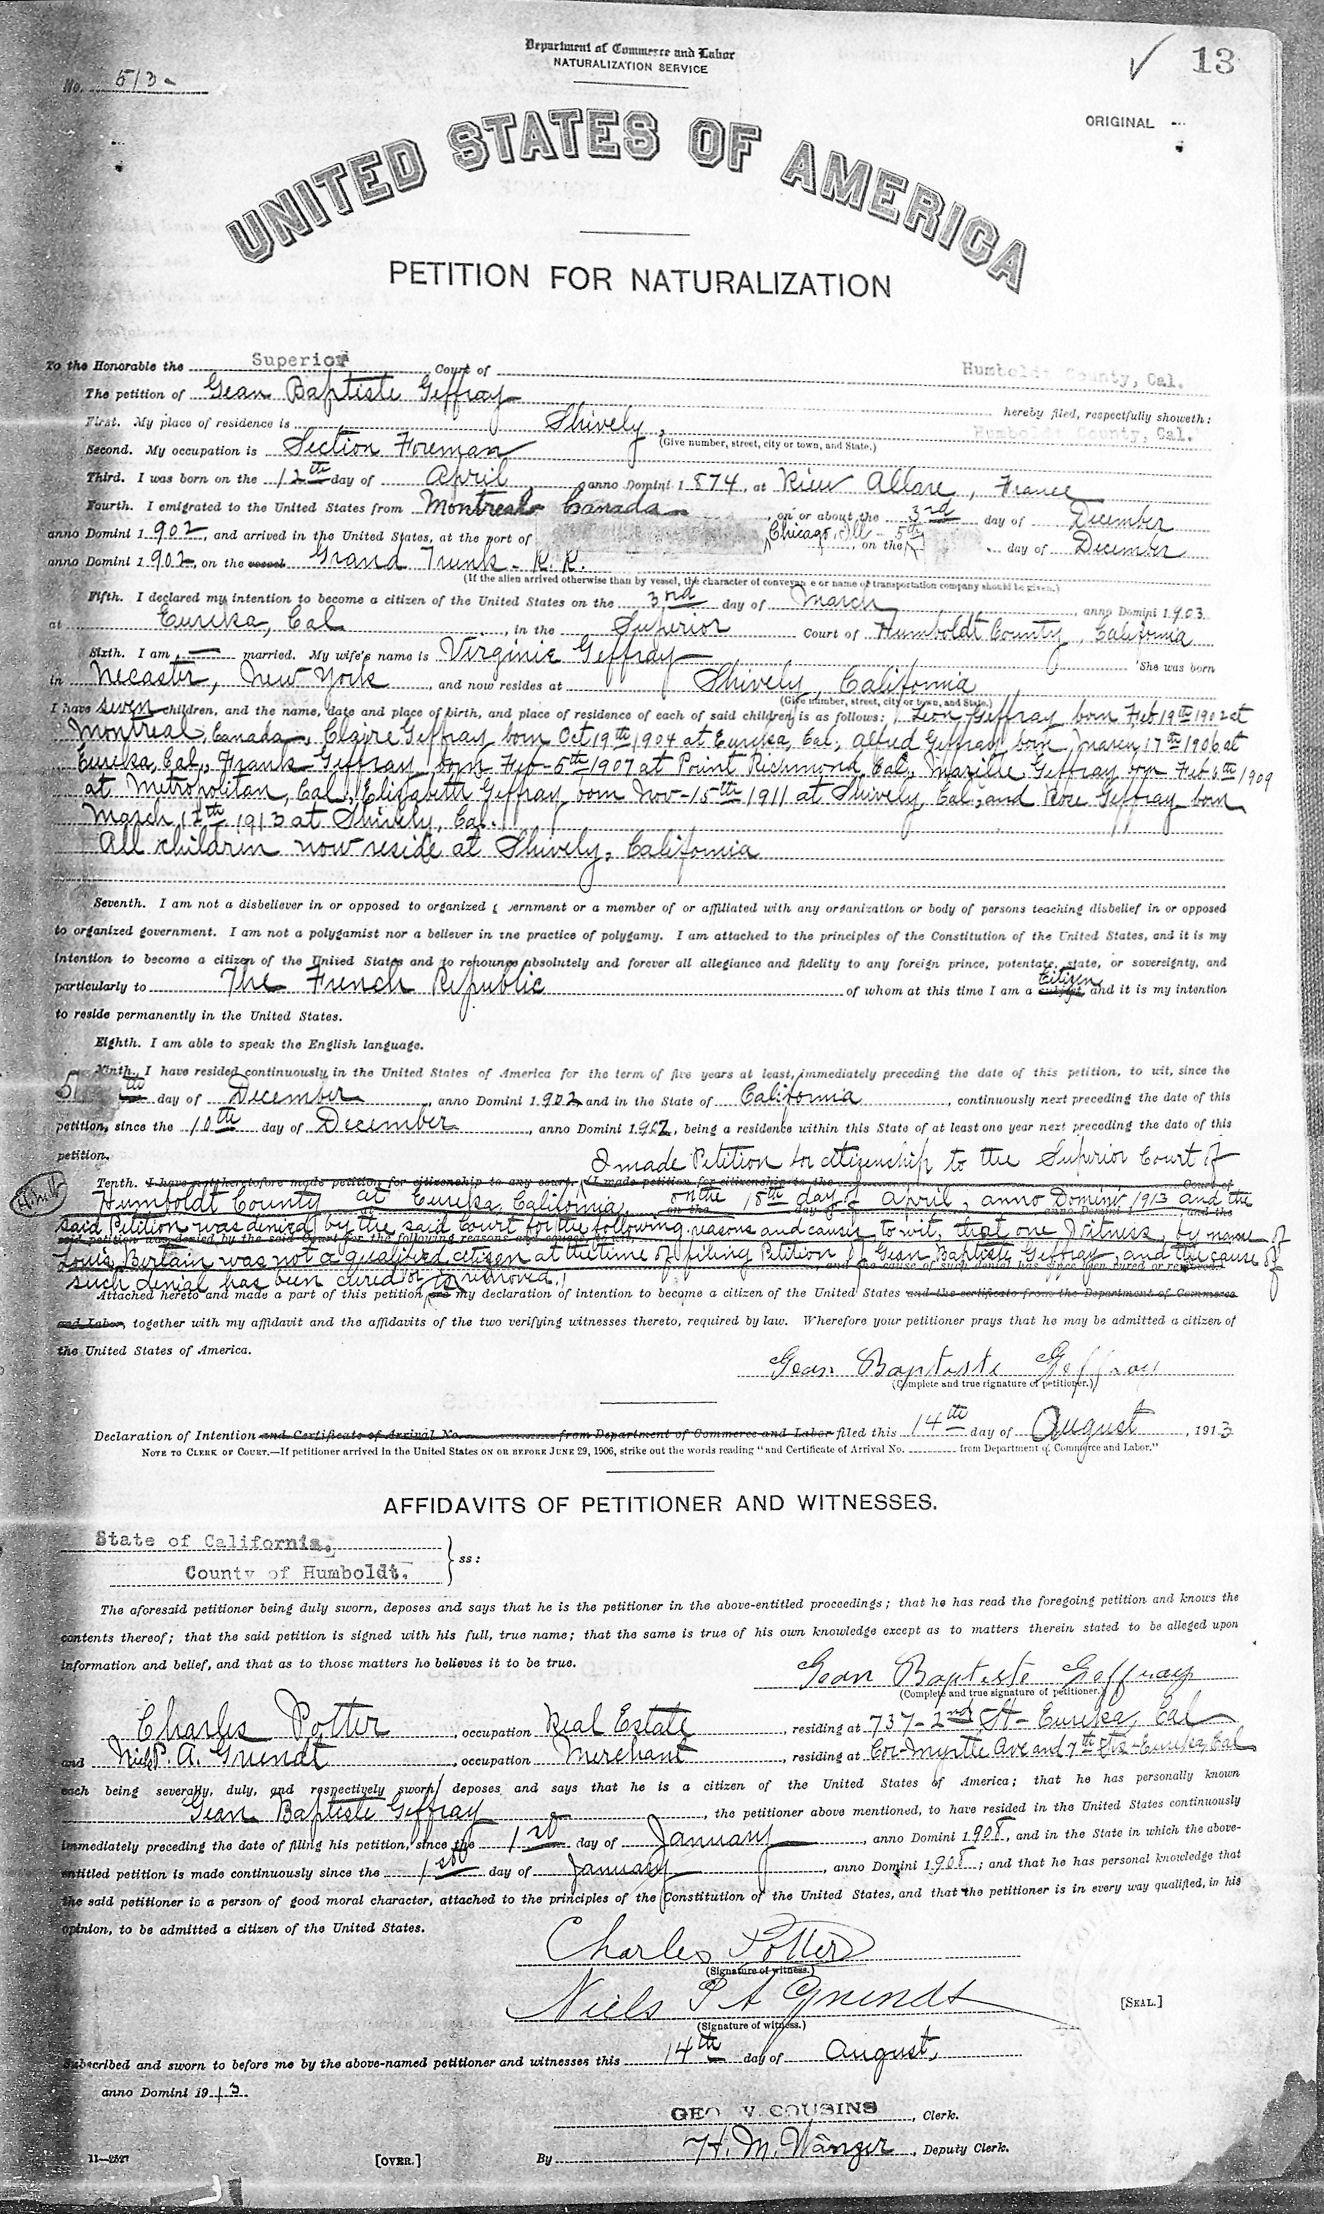 Department of Commerce and Labor
NATURALIZATION SERVICE
13
No. 513
ORIGINAL
UNITED STATES OF AMERICA
PETITION FOR NATURALIZATION
To the Honorable the Superior Court of Humboldt County, Cal.
The petition of Gean Baptiste Geffray hereby filed, respectfully showeth:
First. My place of residence is Shively, Humboldt County, Cal.
(Give number, street, city or town, and State.)
Second. My occupation is Section Foreman
Third. I was born on the 12th day of April, anno Domini 1874, at Rieu Allare, France
Fourth. I emigrated to the United States from Montreal Canada, on or about the 3rd day of December
anno Domini 1902, and arrived in the United States, at the port of Chicago, Ill, on the 5th day of December
anno Domini 1902, on the vessel Grand Trunk R. R.
(If the alien arrived otherwise than by vessel, the character of conveyance or name of transportation company should be given.)
Fifth. I declared my intention to become a citizen of the United States on the 3rd day of March, anno Domini 1903
at Eureka, Cal, in the Superior Court of Humboldt County, California
Sixth. I am — married. My wife's name is Virginie Geffray She was born
in Necaster, New York, and now resides at Shively, California
(Give number, street, city or town, and State.)
I have seven children, and the name, date and place of birth, and place of residence of each of said children is as follows: Leon Geffray born Feb 19th 1902 at
Montreal, Canada, Claire Geffray born Oct 19th 1904 at Eureka, Cal, Alfred Geffray born 17th 1906 at
Eureka, Cal, Frank Geffray born Feb-5th 1907 at Point Richmond, Cal, Geffray born Feb 6th 1909
at Metropolitan, Cal, Elizabeth Geffray born Nov-15th 1911 at Shively, Cal, and Rose Geffray born
March 12th 1913 at Shively, Cal.
All children now reside at Shively, California
Seventh. I am not a disbeliever in or opposed to organized government or a member of or affiliated with any organization or body of persons teaching disbelief in or opposed
to organized government. I am not a polygamist nor a believer in the practice of polygamy. I am attached to the principles of the Constitution of the United States, and it is my
intention to become a citizen of the United States and to renounce absolutely and forever all allegiance and fidelity to any foreign prince, potentate, state, or sovereignty, and
particularly to The French Republic of whom at this time I am a subject citizen and it is my intention
to reside permanently in the United States.
Eighth. I am able to speak the English language.
Ninth. I have resided continuously in the United States of America for the term of five years at least, immediately preceding the date of this petition, to wit, since the
5th day of December, anno Domini 1902 and in the State of California, continuously next preceding the date of this
petition, since the 10th day of December, anno Domini 1902, being a residence within this State of at least one year next preceding the date of this
petition.
I made Petition for citizenship to the Superior Court of
Tenth. I have not heretofore made petition for citizenship to any court. I made petition for citizenship to the Court of
Humboldt County at Eureka, California, on the 18th day of April, anno Domini 1913 and the
said Petition was denied by the said Court for the following reasons and causes, to wit, that one Witness, by name of
Louis Bertain was not a qualified citizen at the time of filing Petition of Gean Baptiste Geffray, and the cause of
such denial has been cured or removed.
Attached hereto and made a part of this petition is my declaration of intention to become a citizen of the United States and the certificate from the Department of Commerce
and Labor, together with my affidavit and the affidavits of the two verifying witnesses thereto, required by law. Wherefore your petitioner prays that he may be admitted a citizen of
the United States of America.
Gean Baptiste Geffray
(Complete and true signature of petitioner.)
Declaration of Intention and Certificate of Arrival No. from Department of Commerce and Labor filed this 14th day of August, 1913
NOTE TO CLERK OF COURT.—If petitioner arrived in the United States ON OR BEFORE JUNE 29, 1906, strike out the words reading "and Certificate of Arrival No. from Department of Commerce and Labor."
AFFIDAVITS OF PETITIONER AND WITNESSES.
State of California,
County of Humboldt. } ss:
The aforesaid petitioner being duly sworn, deposes and says that he is the petitioner in the above-entitled proceedings; that he has read the foregoing petition and knows the
contents thereof; that the said petition is signed with his full, true name; that the same is true of his own knowledge except as to matters therein stated to be alleged upon
information and belief, and that as to those matters he believes it to be true.
Gean Baptiste Geffray
(Complete and true signature of petitioner.)
Charles Potter, occupation Real Estate, residing at 737-2nd St-Eureka, Cal
and Niels P. A. Grundt, occupation Merchant, residing at Cor-Myrtle Ave and 7th Sts-Eureka, Cal
each being severally, duly, and respectively sworn, deposes and says that he is a citizen of the United States of America; that he has personally known
Gean Baptiste Geffray, the petitioner above mentioned, to have resided in the United States continuously
immediately preceding the date of filing his petition, since the 1st day of January, anno Domini 1908, and in the State in which the above-
entitled petition is made continuously since the 1st day of January, anno Domini 1908; and that he has personal knowledge that
the said petitioner is a person of good moral character, attached to the principles of the Constitution of the United States, and that the petitioner is in every way qualified, in his
opinion, to be admitted a citizen of the United States.
Charles Potter
(Signature of witness.)
Niels P A Grundt
(Signature of witness.)
[SEAL.]
Subscribed and sworn to before me by the above-named petitioner and witnesses this 14th day of August,
anno Domini 1913.
GEO. V. COUSINS, Clerk.
By H. M. Wanger, Deputy Clerk.
11—2527
[OVER.]